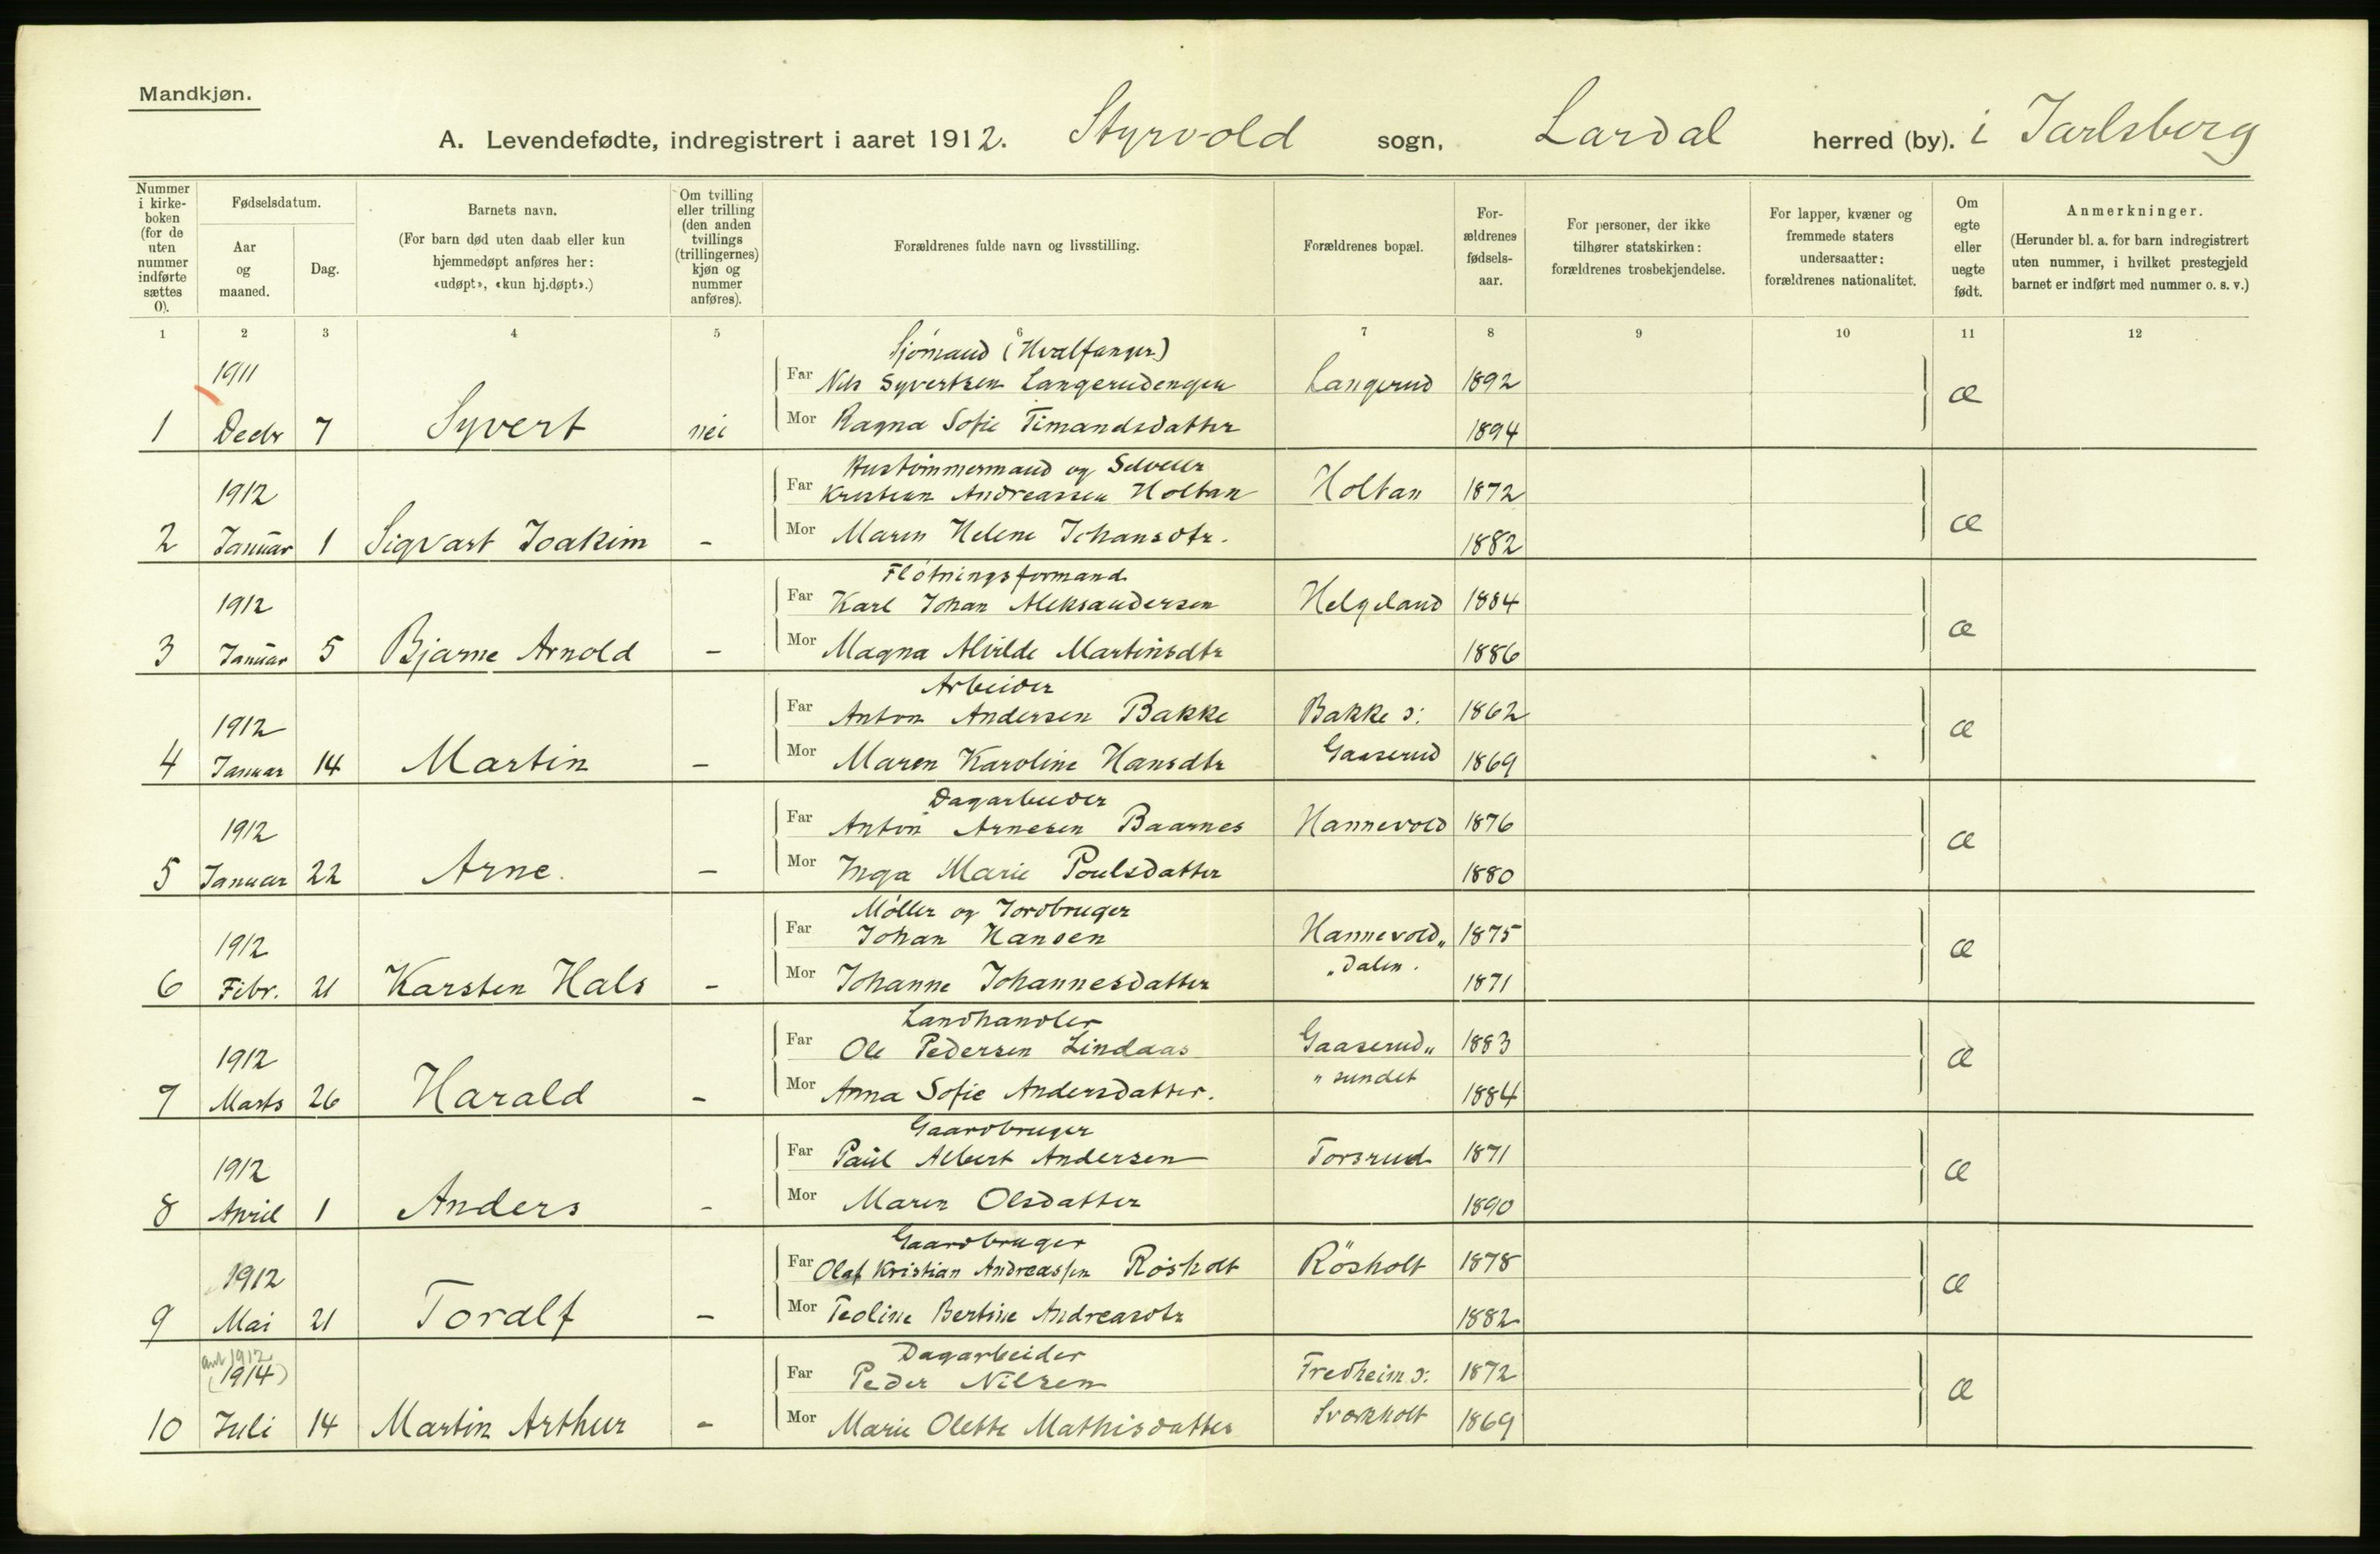 Mandkjøn.
A. Levendefødte, indregistrert i aaret 1912. Styrvold sogn, Lardal herred (by). i Jarlsberg
Nummer i kirke-boken (for de uten nummer indførte sættes 0).
Fødselsdatum.
Aar og maaned.
Dag.
Barnets navn.
(For barn død uten daab eller kun hjemmedøpt anføres her: «udøpt», «kun hj.døpt».)
Om tvilling eller trilling (den anden tvillings (trillingernes) kjøn og nummer anføres).
Forældrenes fulde navn og livsstilling.
Forældrenes bopæl.
For-ældrenes fødsels-aar.
For personer, der ikke tilhører statskirken: forældrenes trosbekjendelse.
For lapper, kvæner og fremmede staters undersaatter: forældrenes nationalitet.
Om egte eller uegte født.
Anmerkninger.
(Herunder bl. a. for barn indregistrert uten nummer, i hvilket prestegjeld barnet er indført med nummer o. s. v.)
1 2 3 4 5 6 7 8 9 10 11 12
Sjömand (Hvalfanger)
1911 Far Nils Syvertsen Langerudengen Langerud 1892 æ
1 Decbr 7 Syvert nei Mor Ragna Sofie Timandsdatter 1894
Hustömmermand og Selveier
1912 Far Kristian Andreassen Holtan Holtan 1872 æ
2 Januar 1 Sigvart Joakim - Mor Maren Helene Johansdtr. 1882
Flötningsformand
1912 Far Karl Johan Aleksandersen Helgeland 1884 æ
3 Januar 5 Bjarne Arnold - Mor Magna Alvilde Martinsdtr 1886
Arbeider
1912 Far Anton Andersen Bakke Bakke s: 1862 æ
4 Januar 14 Martin - Mor Maren Karoline Hansdtr Gaaserud 1869
Dagarbeider
1912 Far Anton Arnesen Baarnes Hannevold 1876 æ
5 Januar 22 Arne. - Mor Inga Marie Poulsdatter 1880
Möller og Jordbruger
1912 Far Johan Hansen Hannevold„ 1875 æ
6 Febr. 21 Karsten Hals - Mor Johanne Johannesdatter „dalen. 1871
Landhandler
1912 Far Ole Pedersen Lindaas Gaaserud„ 1883 æ
7 Marts 26 Harald - Mor Anna Sofie Andersdatter. „sundet 1884
Gaardbruger
1912 Far Paul Albert Andersen Torsrud 1871 æ
8 April 1 Anders - Mor Maren Olsdatter 1890
Gaardbruger
1912 Far Olaf Kristian Andreassen Rösholt Rösholt 1878 æ
9 Mai 21 Toralf - Mor Teoline Bertine Andreasdtr 1882
ant 1912 Dagarbeider
(1914) Far Peder Nilsen Fredheim s: 1872 æ
10 Juli 14 Martin Arthur - Mor Marie Olette Mathisdatter Svarkholt 1869